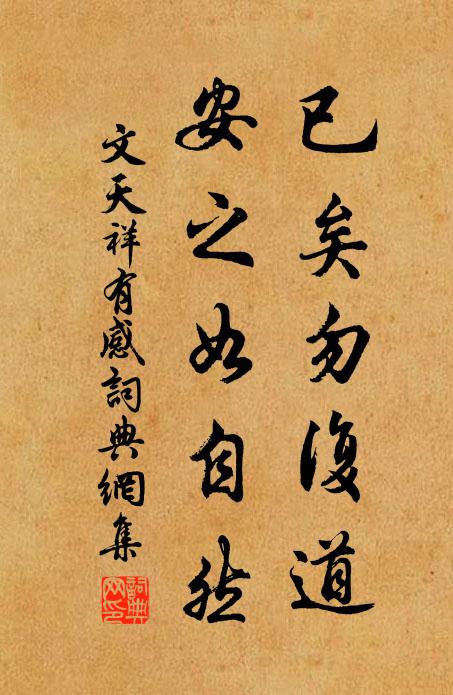 已矣勿復道
安之如自然
文天祥有感詞典網集
詞典
网印